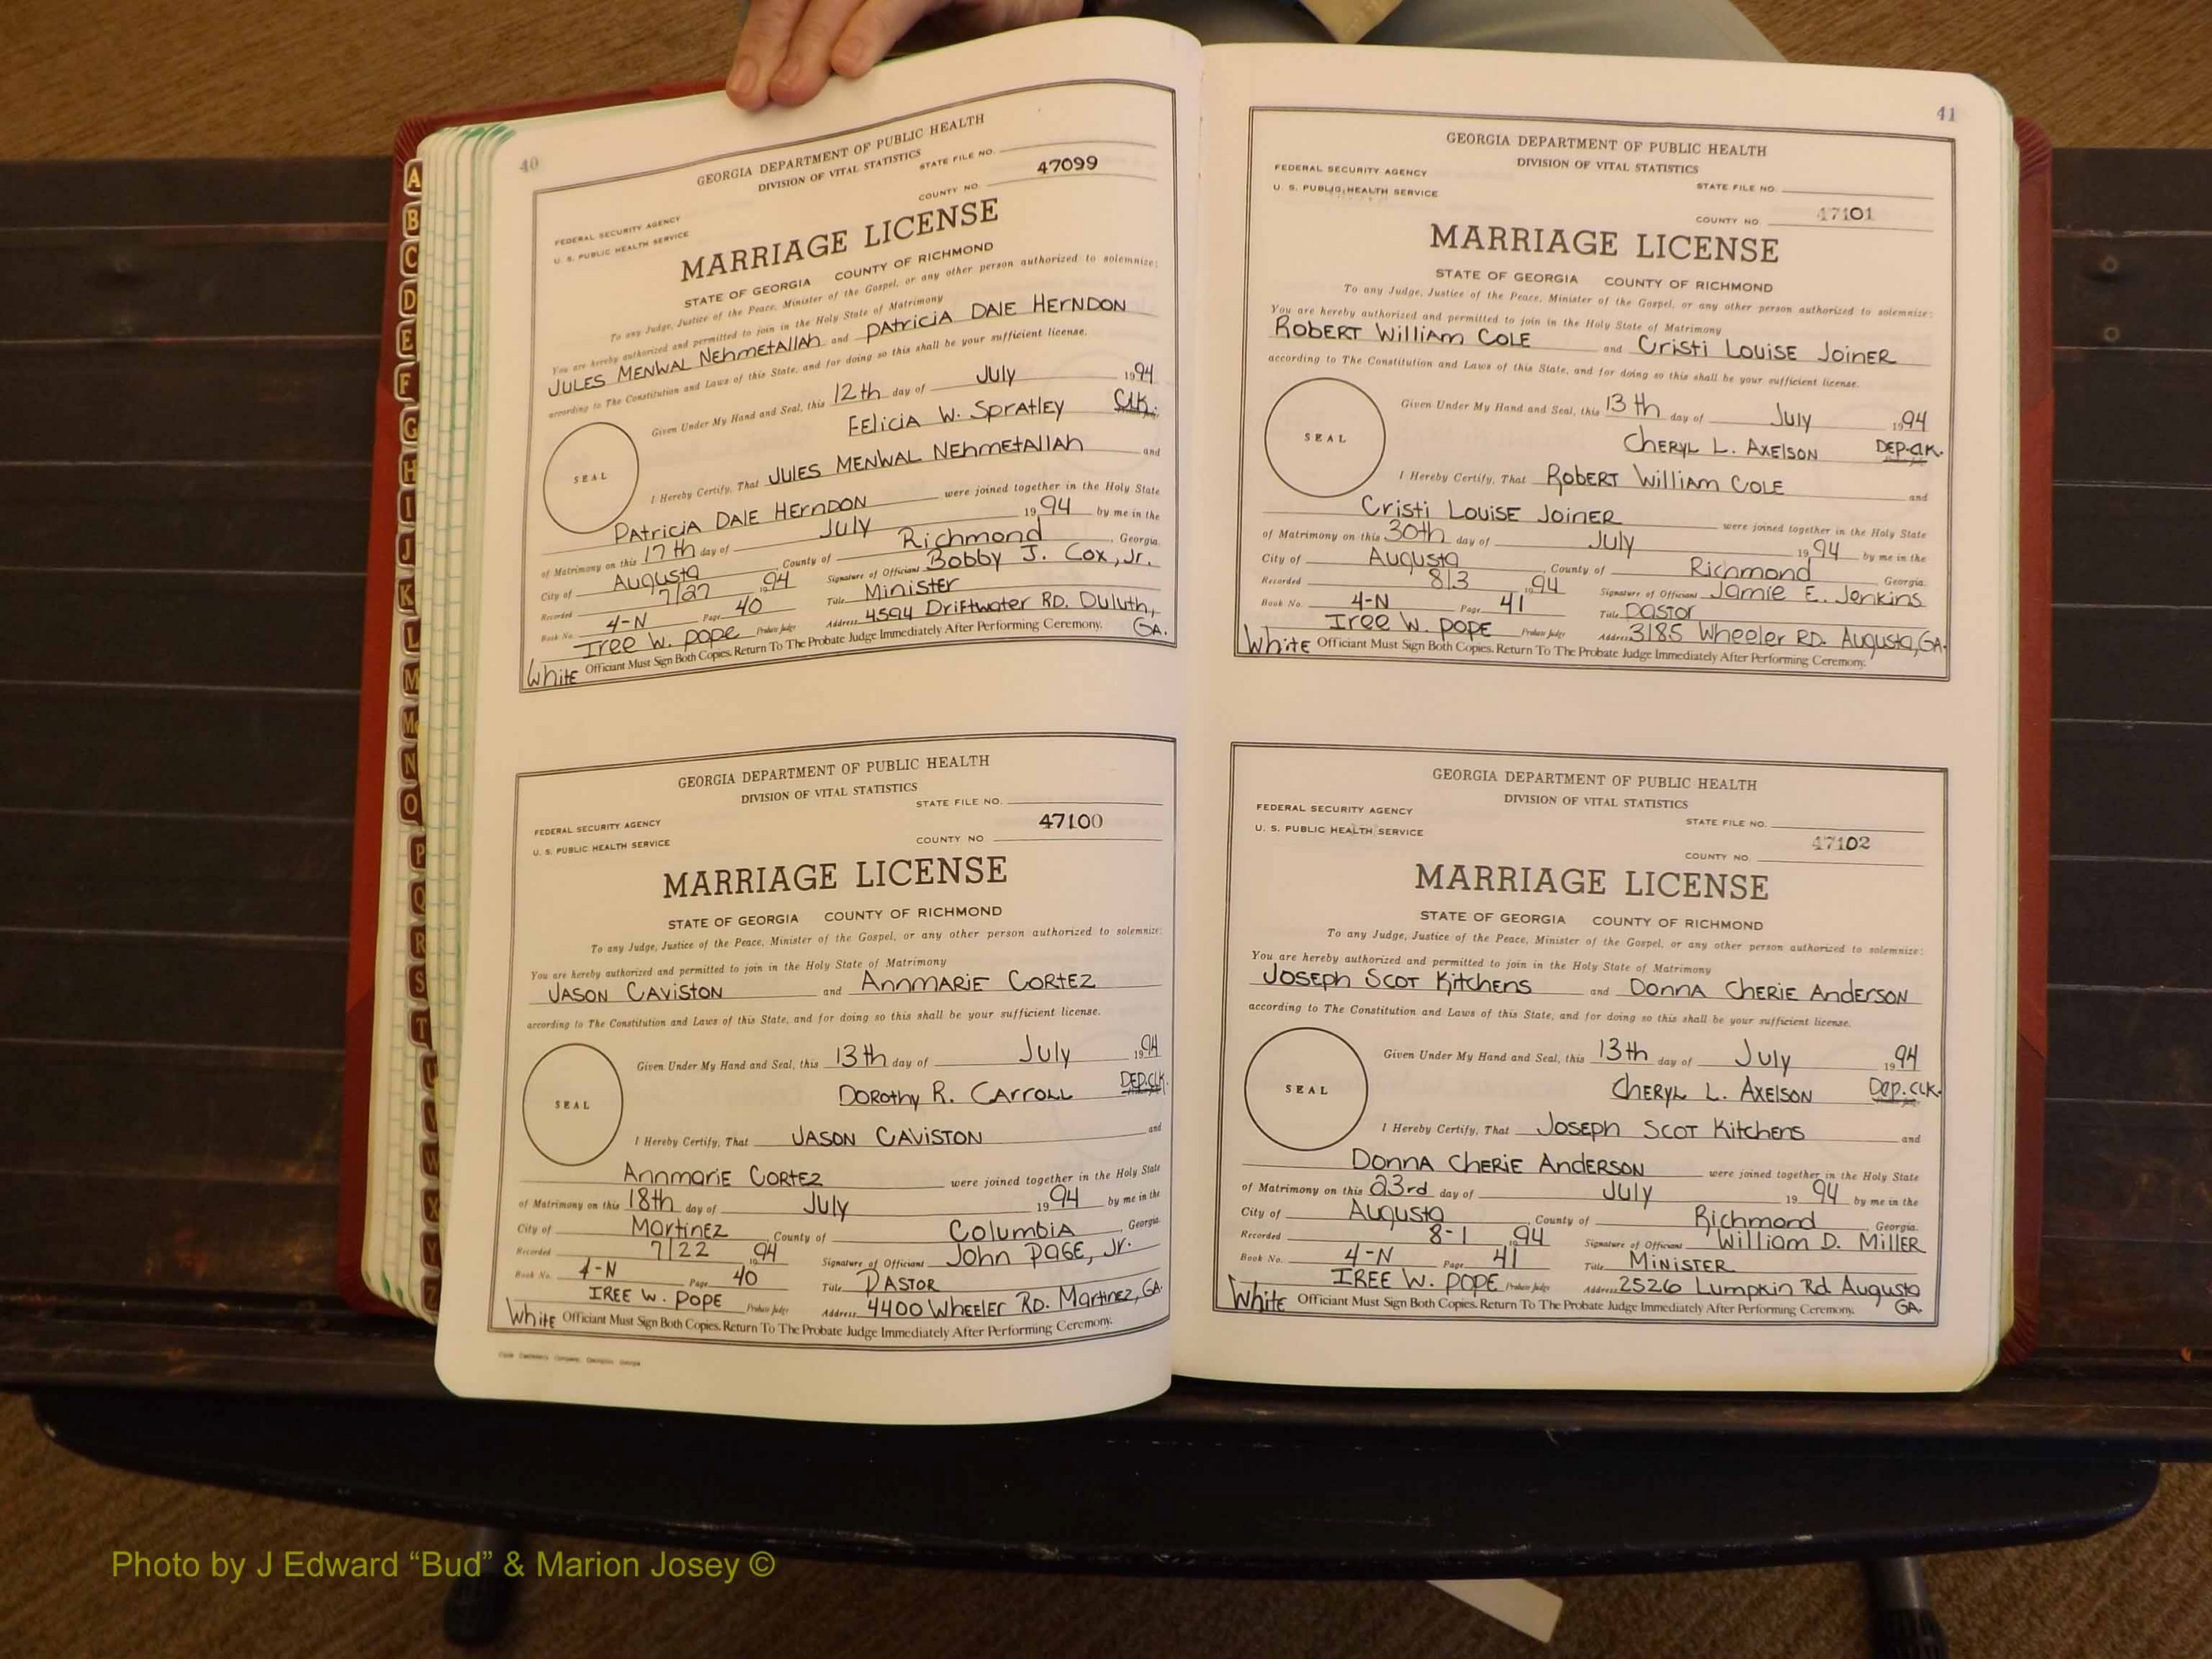 40
GEORGIA DEPARTMENT OF PUBLIC HEALTH
DIVISION OF VITAL STATISTICS
STATE FILE NO.
47099
COUNTY NO.
FEDERAL SECURITY AGENCY
U. S. PUBLIC HEALTH SERVICE
MARRIAGE LICENSE
STATE OF GEORGIA COUNTY OF RICHMOND
To any Judge, Justice of the Peace, Minister of the Gospel, or any other person authorized to solemnize:
You are hereby authorized and permitted to join in the Holy State of Matrimony
JULES MENWAL NEhmetAllah and PAtriciA DAlE HErnDON
according to The Constitution and Laws of this State, and for doing so this shall be your sufficient license.
Given Under My Hand and Seal, this 12th day of July 1994
FEliciA W. SprAtley Clk.
SEAL
I Hereby Certify, That JULES MENWAL NEhmetAllah and
PAtriciA DAlE HErnDON were joined together in the Holy State
of Matrimony on this 17th day of July 1994 by me in the
City of Augusta, County of Richmond, Georgia.
Recorded 7/27 1994 Signature of Officiant Bobby J. Cox, Jr.
Book No. 4-N Page 40 Title Minister
Iree W. pope Probate Judge Address 4594 Driftwater RD. Duluth, GA.
White Officiant Must Sign Both Copies. Return To The Probate Judge Immediately After Performing Ceremony.
GEORGIA DEPARTMENT OF PUBLIC HEALTH
DIVISION OF VITAL STATISTICS
STATE FILE NO.
47100
FEDERAL SECURITY AGENCY
COUNTY NO
U. S. PUBLIC HEALTH SERVICE
MARRIAGE LICENSE
STATE OF GEORGIA COUNTY OF RICHMOND
To any Judge, Justice of the Peace, Minister of the Gospel, or any other person authorized to solemnize:
You are hereby authorized and permitted to join in the Holy State of Matrimony
JASON CAVistON and AnnMARiE CORtEZ
according to The Constitution and Laws of this State, and for doing so this shall be your sufficient license.
Given Under My Hand and Seal, this 13th day of July 1994
DORothy R. CArrOLL DEP.Clk.
SEAL
I Hereby Certify, That JASON CAVISTON and
AnnmariE CORtEZ were joined together in the Holy State
of Matrimony on this 18th day of July 1994 by me in the
City of Martinez, County of Columbia, Georgia.
Recorded 7/22 1994 Signature of Officiant John PAGE, Jr.
Book No. 4-N Page 40 Title PASTOR
IREE W. POPE Probate Judge Address 4400 Wheeler RD. Martinez, GA.
White Officiant Must Sign Both Copies. Return To The Probate Judge Immediately After Performing Ceremony.
41
GEORGIA DEPARTMENT OF PUBLIC HEALTH
DIVISION OF VITAL STATISTICS
FEDERAL SECURITY AGENCY
U. S. PUBLIC HEALTH SERVICE
STATE FILE NO.
47101
COUNTY NO.
MARRIAGE LICENSE
STATE OF GEORGIA COUNTY OF RICHMOND
To any Judge, Justice of the Peace, Minister of the Gospel, or any other person authorized to solemnize:
You are hereby authorized and permitted to join in the Holy State of Matrimony
ROBERT William COLE and Cristi LOUiSE JoinER
according to The Constitution and Laws of this State, and for doing so this shall be your sufficient license.
Given Under My Hand and Seal, this 13th day of July 1994
CHERYL L. AXElSON DEP.Clk.
SEAL
I Hereby Certify, That ROBERT William COLE and
Cristi LOUiSE JoinER were joined together in the Holy State
of Matrimony on this 30th day of July 1994 by me in the
City of Augusta, County of Richmond Georgia.
Recorded 8/3 1994 Signature of Officiant Jamie E. Jenkins
Book No. 4-N Page 41 Title pastor
Iree W. POPE Probate Judge Address 3185 Wheeler RD. Augusta, GA.
White Officiant Must Sign Both Copies. Return To The Probate Judge Immediately After Performing Ceremony.
GEORGIA DEPARTMENT OF PUBLIC HEALTH
DIVISION OF VITAL STATISTICS
FEDERAL SECURITY AGENCY
U. S. PUBLIC HEALTH SERVICE
STATE FILE NO.
47102
COUNTY NO.
MARRIAGE LICENSE
STATE OF GEORGIA COUNTY OF RICHMOND
To any Judge, Justice of the Peace, Minister of the Gospel, or any other person authorized to solemnize:
You are hereby authorized and permitted to join in the Holy State of Matrimony
JOSEPH SCOT Kitchens and DonnA CHERIE AndERSON
according to The Constitution and Laws of this State, and for doing so this shall be your sufficient license.
Given Under My Hand and Seal, this 13th day of July 1994
CHERYL L. AXElSON Dep.Clk.
SEAL
I Hereby Certify, That JOSEPH SCOT Kitchens and
DonnA CHERiE AndERSON were joined together in the Holy State
of Matrimony on this 23rd day of July 1994 by me in the
City of Augusta, County of Richmond Georgia.
Recorded 8-1 1994 Signature of Officiant William D. MillER
Book No. 4-N Page 41 Title MinistER
IREE W. POPE Probate Judge Address 2526 Lumpkin Rd Augusta GA.
White Officiant Must Sign Both Copies. Return To The Probate Judge Immediately After Performing Ceremony.
A
B
C
D
E
F
G
H
I
J
K
L
M
Mc
N
O
P
Q
R
S
T
W
X
Y
Z
Photo by J Edward “Bud” & Marion Josey ©